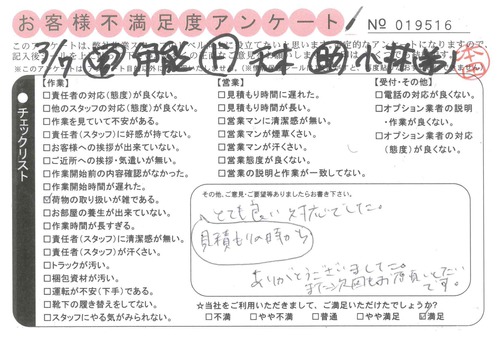 お客様不満足度アンケート
No 019516
3/7
チェックリスト
【作業】
□責任者の対応(態度)が良くない。
□他のスタッフの対応(態度)が良くない。
□作業を見ていて不安がある。
□責任者(スタッフ)に好感が持てない。
□お客様への挨拶が出来ていない。
□ご近所への挨拶・気遣いが無い。
□作業開始前の内容確認がなかった。
□作業開始時間が遅れた。
☑荷物の取り扱いが雑である。
□お部屋の養生が出来ていない。
□作業時間が長すぎる。
□責任者(スタッフ)に清潔感が無い。
□責任者(スタッフ)が汗くさい。
□トラックが汚い。
□梱包資材が汚い。
□運転が不安(下手)である。
□靴下の履き替えをしてない。
□スタッフにやる気がみられない。
【営業】
□見積もり時間に遅れた。
□見積もり時間が長い。
□営業マンに清潔感が無い。
□営業マンが煙草くさい。
□営業マンが汗くさい。
□営業態度が良くない。
□営業の説明と作業が一致してない。
【受付・その他】
□電話の対応が良くない。
□オプション業者の説明
・作業が良くない。
□オプション業者の対応
(態度)が良くない。
その他、ご意見・ご要望等ありましたらお書き下さい。
とても良い対応でした。
見積もりの時から
ありがとうございました。
また次回もお願いしたい
です。
☆当社をご利用いただきまして、ご満足いただけたでしょうか?
□不満 □やや不満 □普通 □やや満足 ☑満足